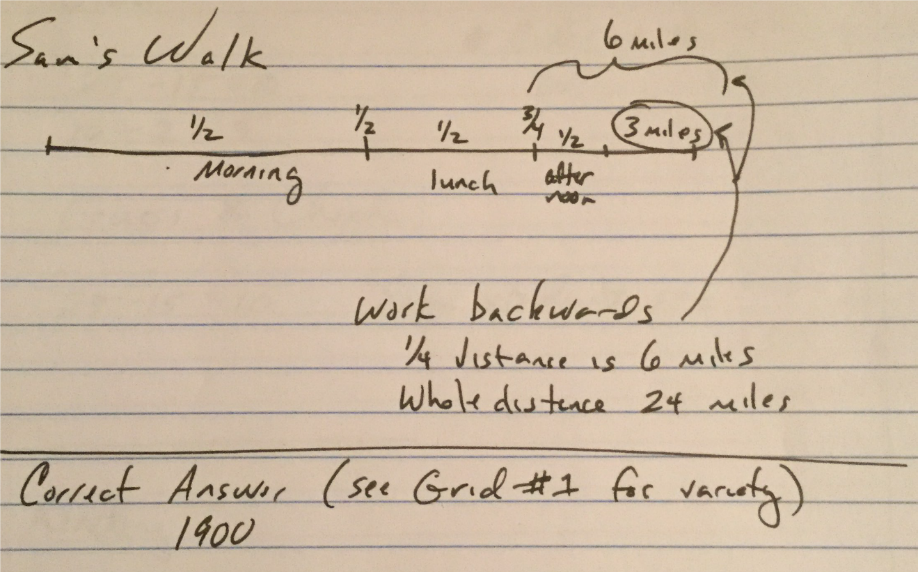 Sam's Walk
6 miles
1/2 1/2 1/2 3/4 1/2 3 miles
Morning lunch after noon
Work backwards
1/4 distance is 6 miles
Whole distence 24 miles
Correct Answer (see Grid #1 for variety)
1900